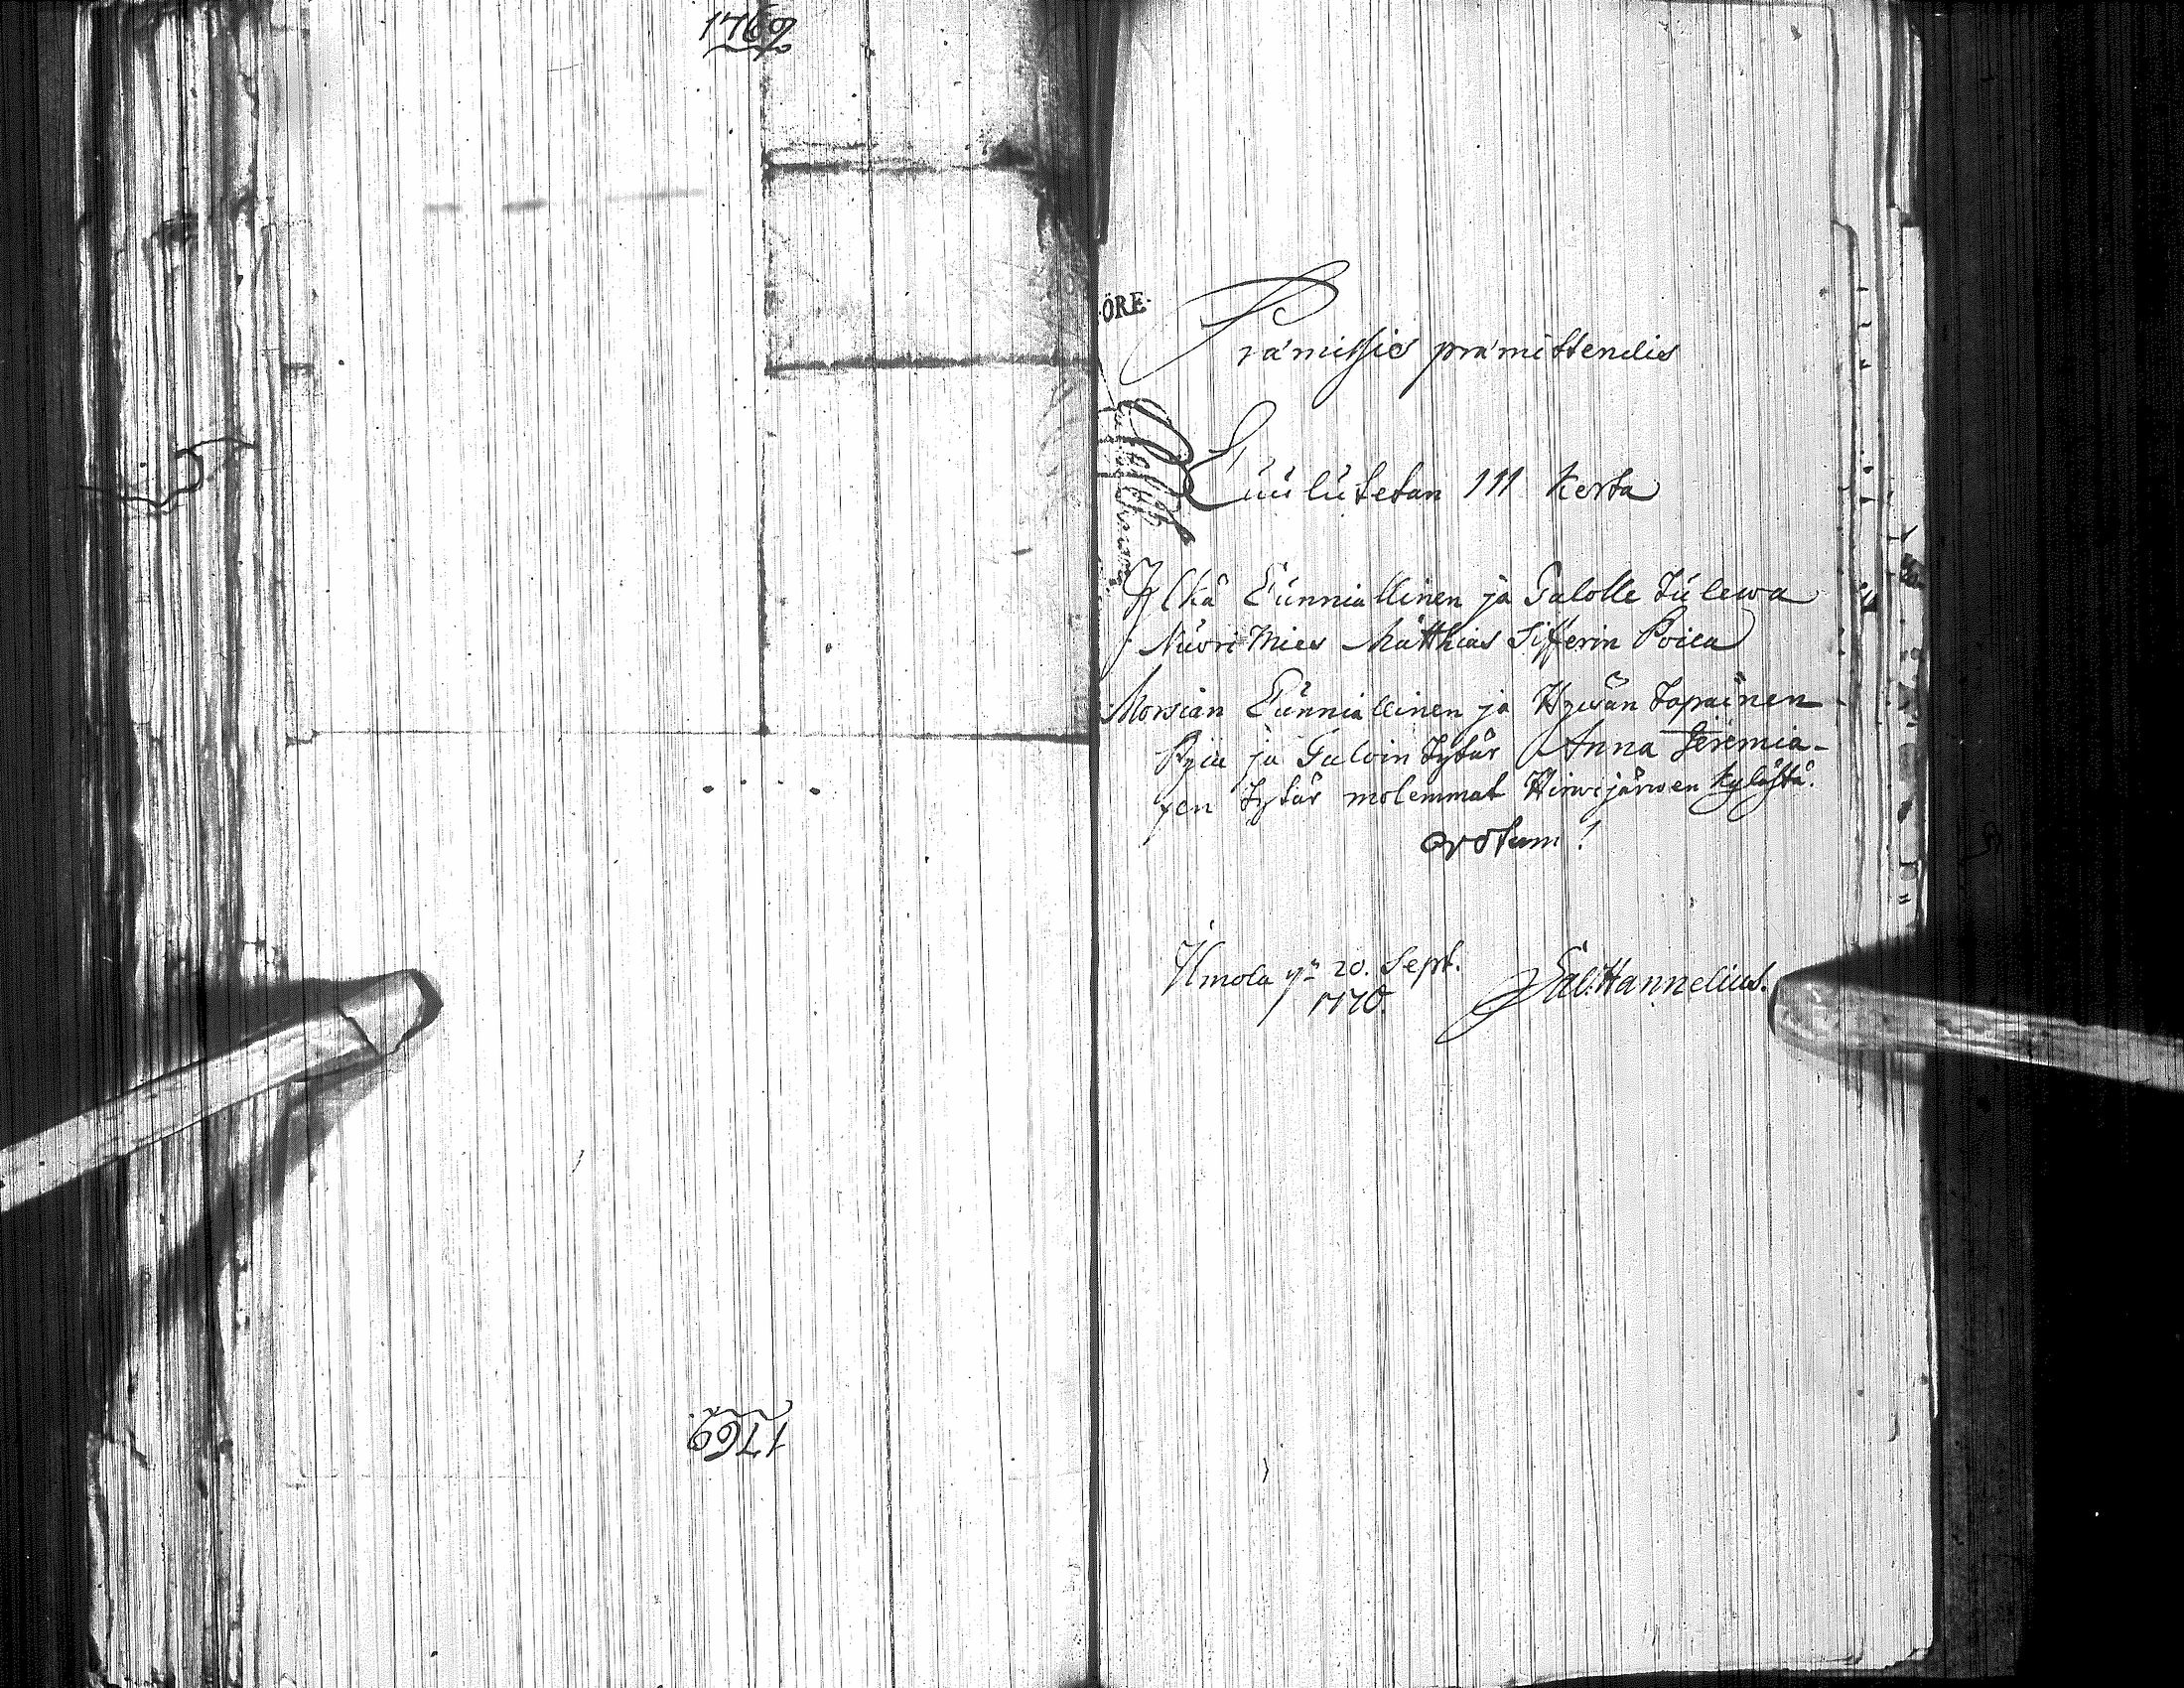 1769
ÖRE.
Præmissis præmittendis
Cuulutetan III kerta
Ylkä Cunniallinen ja Talolle tulewa
Nuori Mies Matthias Sifferin Poica
Morsian Cunniallinen ja Hywän tapainen
Pijca ja Taloin tytär Anna Jeremia-
xen tytär molemmat Hirwijärwen kylästä.
votum!
Ilmola 20. Sept.
1770.
Sal: Hannelius.
1769